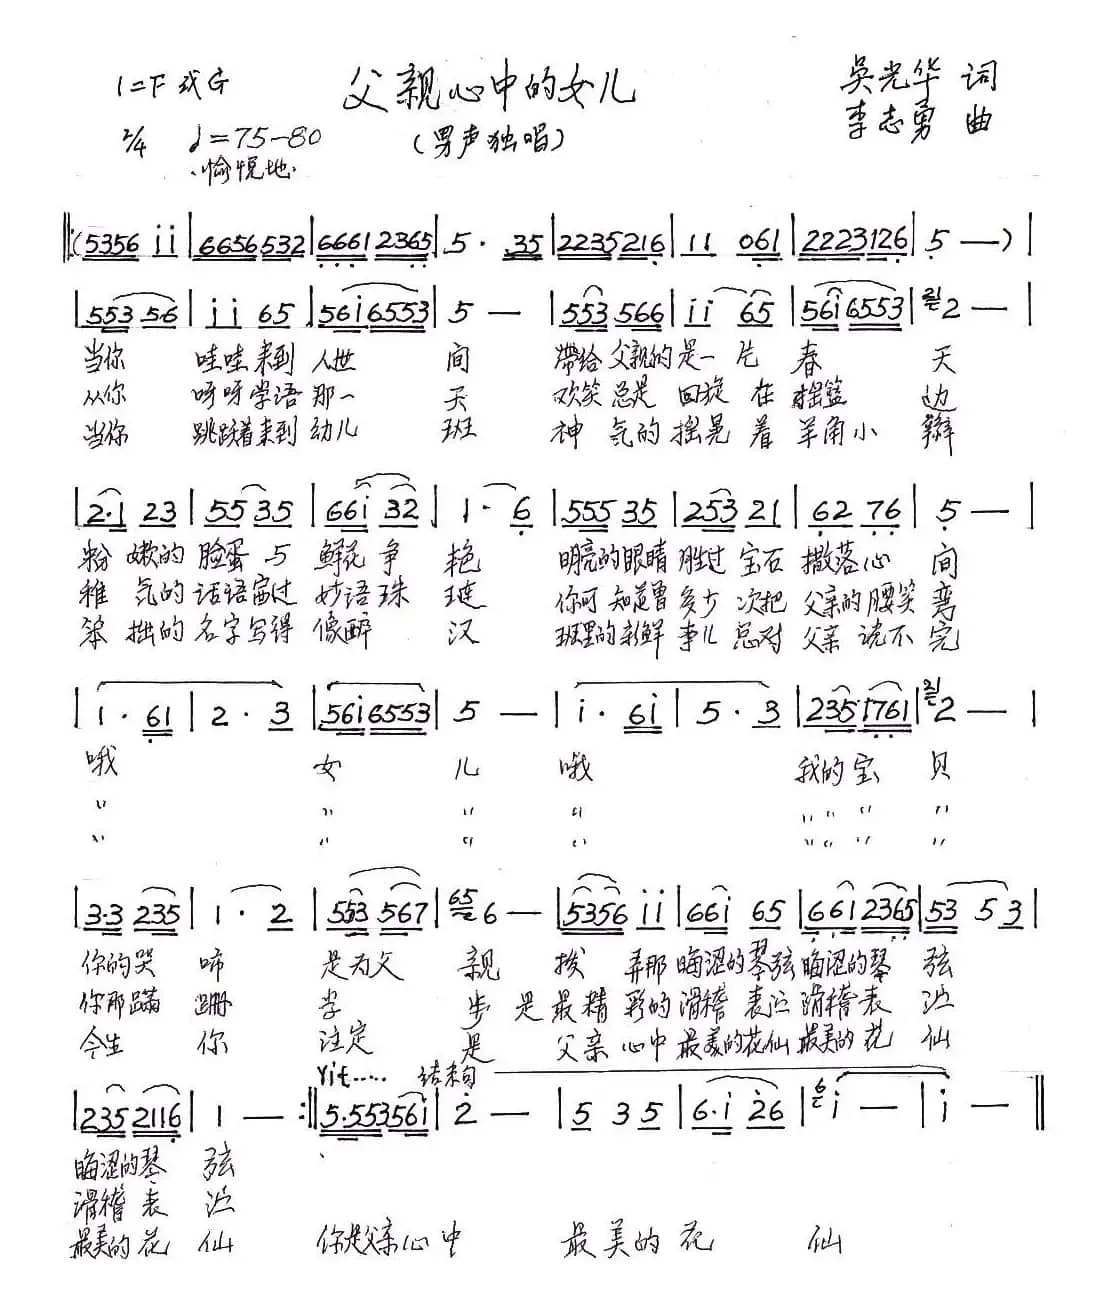 1=F或G
父亲心中的女儿
吴光华 词
2/4 ♩=75-80
(男声独唱)
李志勇 曲
愉悦地
‖:(5356 ii|6656532|66612365|5· 35|2235216|11 061|2223126|5 —)|
|553 56|ii 65|56i6553|5 —|553 566|ii 65|56i6553|2 —|
当你 哇哇来到 人世 间 带给 父亲的 是一 片 春 天
从你 呀呀学语 那一 天 欢笑 总是 回旋 在 摇篮 边
当你 跳跃着来到 幼儿 班 神 气的 摇晃 着 羊角小 辫
|2·1 23|55 35|66i 32|1· 6|555 35|253 21|62 76|5 —|
粉 嫩的 脸蛋 与 鲜花 争 艳 明亮的眼睛 胜过 宝石 撒落心 间
稚 气的 话语赛过 妙语 珠 琏 你可 知道曾 多少 次把 父亲的 腰笑 弯
笨 拙的 名字写得 像醉 汉 班里的新鲜 事儿 总对 父亲 说不 完
|1· 61|2· 3|56i6553|5 —|i· 6i|5· 3|2351761|2 —|
哦 女 儿 哦 我的宝 贝
〃 〃 〃 〃 〃〃〃 〃
〃 〃 〃 〃 〃〃〃 〃
|3·3 235|1· 2|553 567|65 6 —|5356 ii|66i 65|6612365|53 5 3|
你的哭 啼 是为父 亲 拨 弄那 晦涩的琴弦 晦涩的琴 弦
你那蹒 跚 学 步 是 最 精 彩的 滑稽 表演 滑稽 表 演
今生 你 注定 是 父亲 心中 最美的花仙 最美的 花 仙
rit..... 结束句
|235 2116|1 —:‖5·55356i|2 —|5 3 5|6·i 26|6 i —|i —‖
晦涩的琴 弦
滑稽 表 演
最美的 花 仙 你是父亲心 中 最 美 的 花 仙